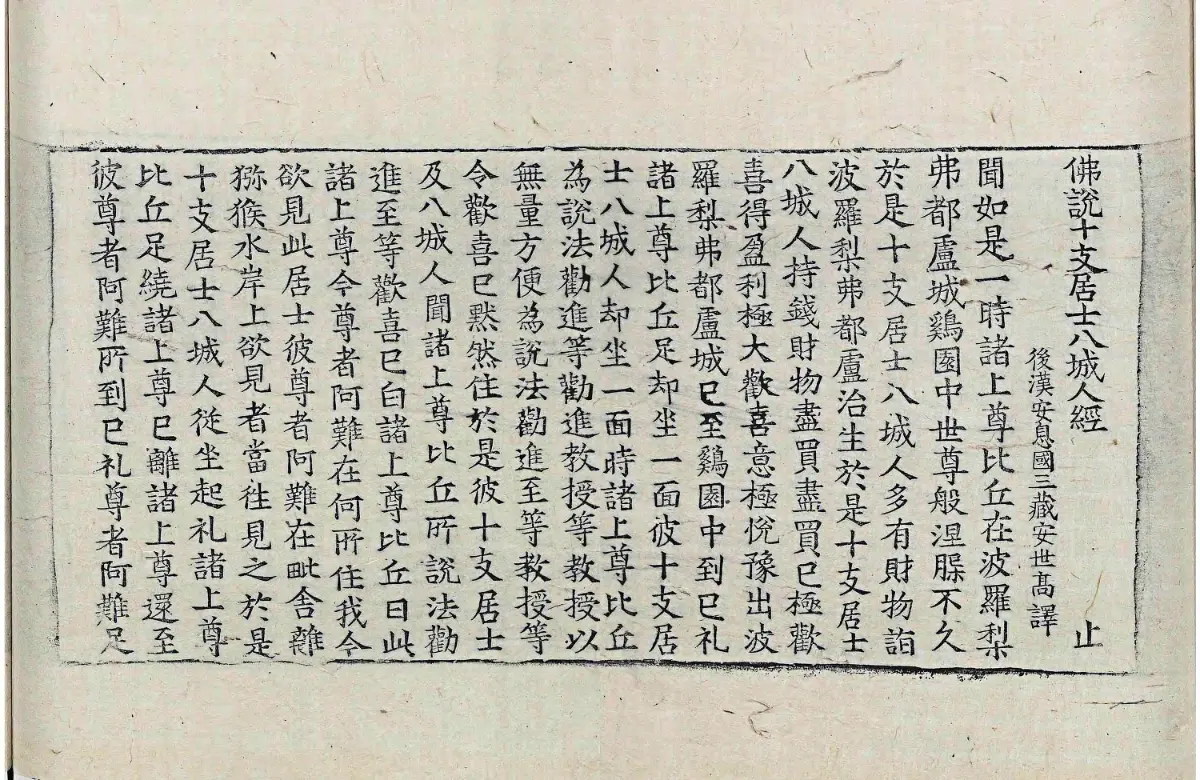 佛說十支居士八城人經　止
後漢安息國三藏安世高譯
聞如是一時諸上尊比丘在波羅梨
弗都盧城鷄園中世尊般涅脲不久
於是十支居士八城人多有財物詣
波羅梨弗都盧治生於是十支居士
八城人持錢財物盡買盡買已極歡
喜得盈利極大歡喜意極悅豫出波
羅梨弗都盧城已至鷄園中到已礼
諸上尊比丘足却坐一面彼十支居
士八城人却坐一面時諸上尊比丘
為說法勸進等勸進教授等教授以
無量方便為說法勸進至等教授等
令歡喜已黙然住於是彼十支居士
及八城人聞諸上尊比丘所說法勸
進至等歡喜已白諸上尊比丘曰此
諸上尊今尊者阿難在何所住我今
欲見此居士彼尊者阿難在毗舍離
猕猴水岸上欲見者當往見之於是
十支居士八城人從坐起礼諸上尊
比丘足繞諸上尊已離諸上尊還至
彼尊者阿難所到已礼尊者阿難足